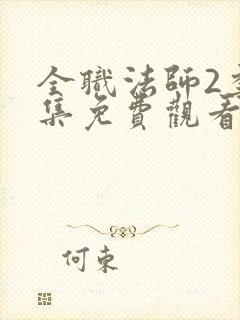 全職法師2季
集免費觀看
何東